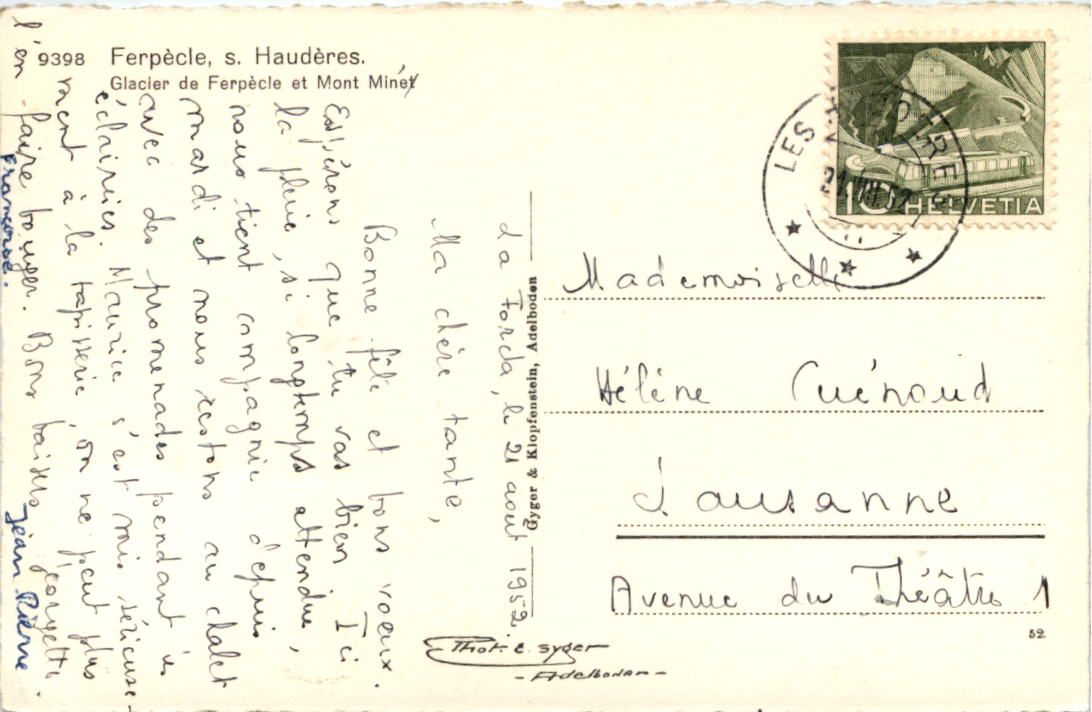 9398 Ferpècle, s. Haudères.
Glacier de Ferpècle et Mont Miné
La Forcla, le 21 août 1952.
Ma chère tante,
Bonne fête et bons voeux.
Espérons que tu vas bien. Ici
la pluie, si longtemps attendue,
nous tient compagnie depuis
mardi et nous restons au chalet
avec des promenades pendant les
éclaircies. Maurice s'est mis sérieuse-
ment à la tapisserie, on ne peut plus
l'en faire bouger. Bons baisers
Françoise.
Jean Pierre
Gyger & Klopfenstein, Adelboden
LES
21.VIII.52
10 HELVETIA
Mademoiselle
Hélène Cuénoud
Lausanne
Avenue du Théâtre 1
52
Phot. E. Gyger
- Adelboden -